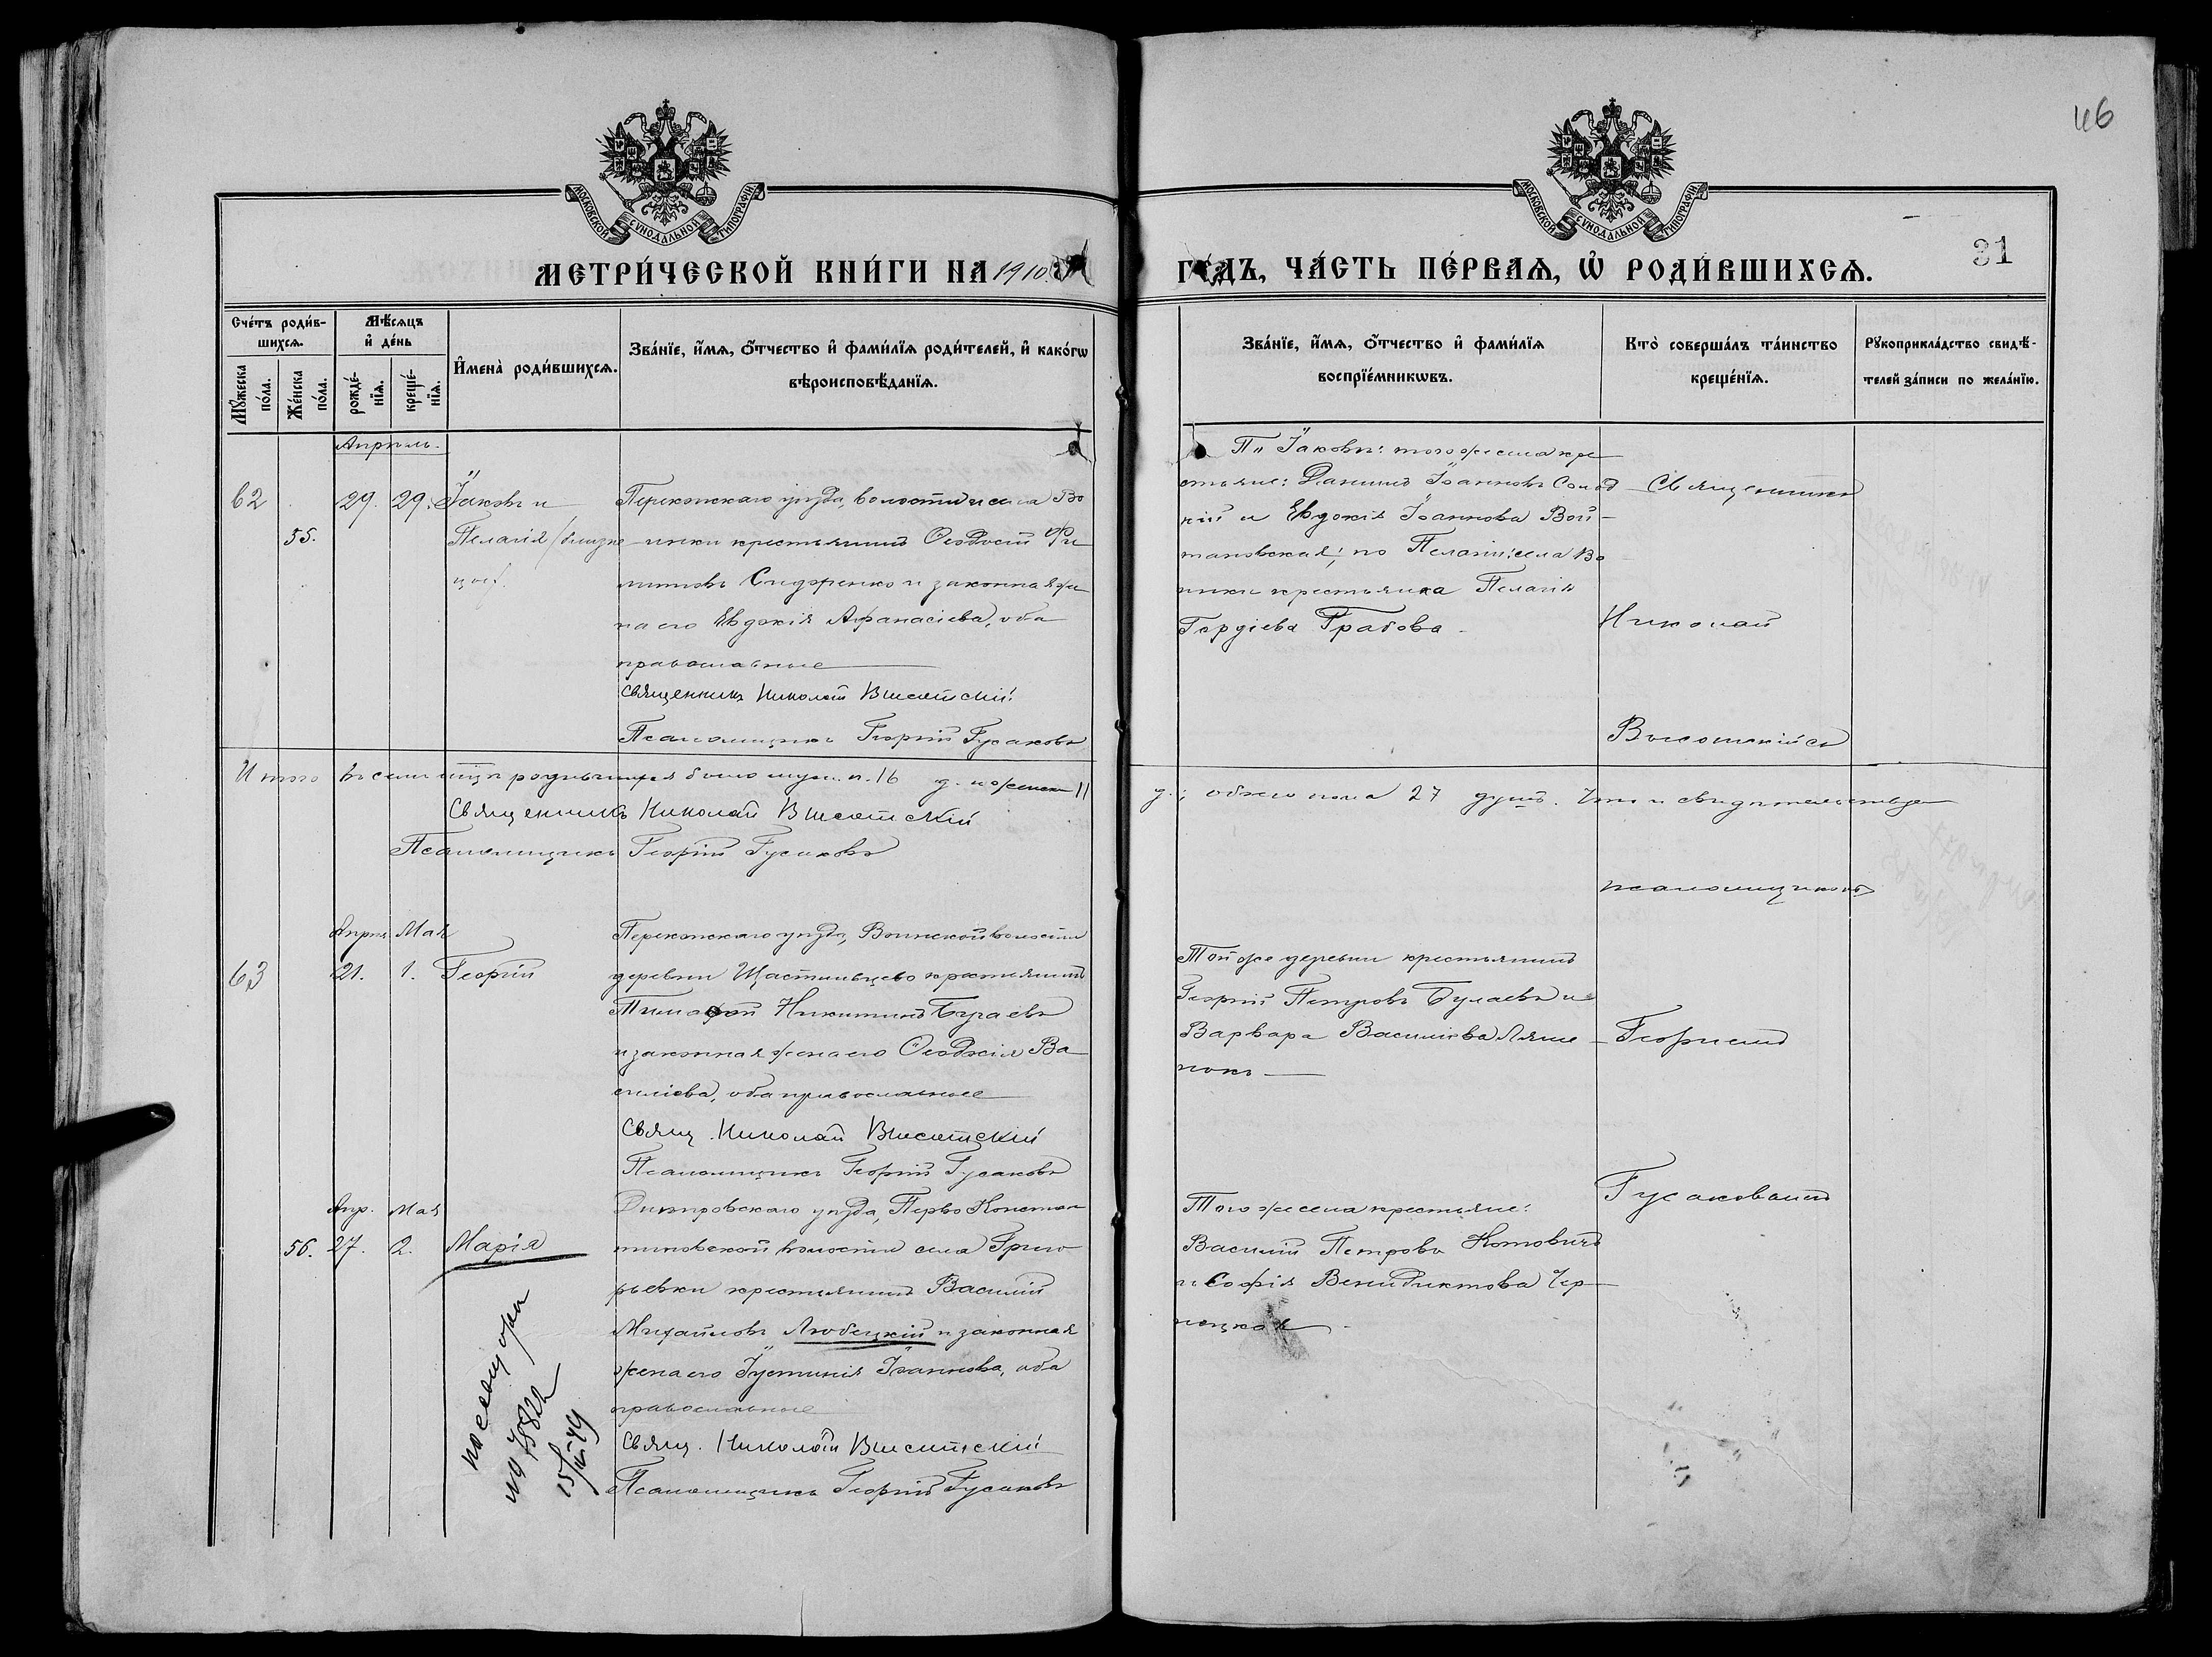 46
МОСКОВСКОЙ СѴНОДАЛЬНОЙ ТИПОГРАФІИ
МОСКОВСКОЙ СѴНОДАЛЬНОЙ ТИПОГРАФІИ
31
МЕТРИ́ЧЕСКОЙ КНИ́ГИ НА 1910
ГО́ДЪ, ЧА́СТЬ ПЕ́РВАѦ, Ѡ҆ РОДИ́ВШИХСѦ.
Сче́тъ роди́в-
шихсѧ.
Мꙋ́жеска по́ла.
Же́нска по́ла.
Мѣ́сѧцъ
и҆ де́нь
рожде́-
нїѧ.
креще́-
нїѧ.
И҆мена̀ роди́вшихсѧ.
Зва́нїе, и҆́мѧ, ѻ҆́тчество и҆ фами́лїѧ роди́телей, и҆ како́гѡ
вѣроисповѣ́данїѧ.
Зва́нїе, и҆́мѧ, ѻ҆́тчество и҆ фами́лїѧ
воспрїе́мникѡвъ.
Кто̀ соверша́лъ та́инство
креще́нїѧ.
Рꙋкоприкла́дство свидѣ́-
телей за́писи по жела́нїю.
Апрѣль.
62
55.
29. 29.
Іаковъ и
Пелагія /близне
цы/.
Перекопскаго уѣзда, волости и села Во
инки крестьянинъ Ѳеодосій Фи
липповъ Сидоренко и законная же
на его Евдокія Афанасіева, оба
православные
Священникъ Николай Высотскій
Псаломщикъ Георгій Гусаковъ
По Іаковѣ: того же села кре
стьяне: Даніилъ Іоанновъ
и Евдокія Іоаннова Вой-
тановская; по Пелагіи: села Во
инки крестьянка Пелагія
Гордіева Грабова
Священникъ
Николай
Высотскій съ
псаломщикомъ
Итого въ семъ м-цѣ родившихся было муж. п. 16 д. и женск 11
д.; обоего пола 27 душъ. Что и свидѣтельствуемъ
Священникъ Николай Высотскій
Псаломщикъ Георгій Гусаковъ
Апрѣл. Мая
63
21. 1. Георгій
Перекопскаго уѣзда, Воинской волости
деревни Щастливцево крестьянинъ
Тимофей Никитинъ Бураевъ
и законная жена его Ѳеодосія Ва
силіева, оба православные
Свящ. Николай Высотскій
Псаломщикъ Георгій Гусаковъ
Той же деревни крестьянинъ
Георгій Петровъ Булаевъ и
Варвара Василіева Ляше
нокъ
Георгіемъ
Гусаковымъ
Апр. Мая
56. 27. 2. Марія
Днѣпровскаго уѣзда, Перво Констан
тиновской волости села Григо
рьевки крестьянинъ Василій
Михайловъ Любецкій и законная
жена его Іустинія Іоаннова, оба
православные
Свящ. Николай Высотскій
Псаломщикъ Георгій Гусаковъ
Того же села крестьяне:
Василій Петровъ Котовичъ
и Софія Венидиктова Чер
нецкая
15/III 49